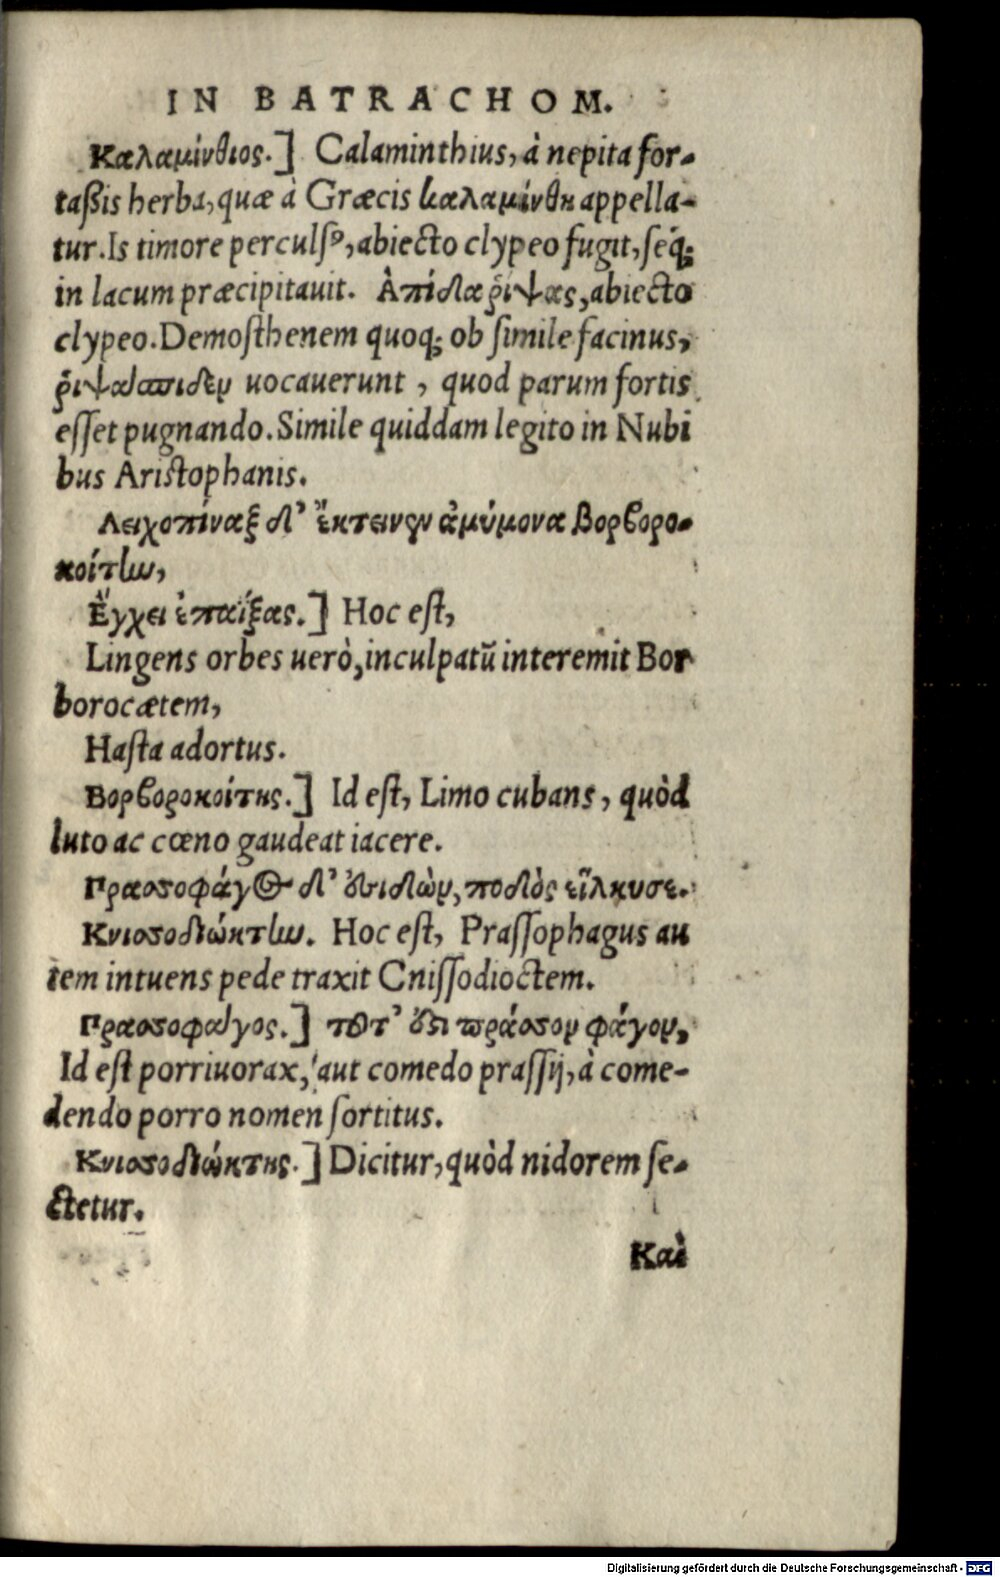 IN BATRACHOM.
Καλαμίνθιος.] Calaminthius, à nepita for-
taßis herba, quæ à Græcis καλαμίνθη appella-
tur. Is timore perculsꝰ, abiecto clypeo fugit, seq́;
in lacum præcipitauit. Ἀπίδα ῥίψας, abiecto
clypeo. Demosthenem quoq; ob simile facinus,
ῥίψασπιδεν uocauerunt, quod parum fortis
esset pugnando. Simile quiddam legito in Nubi
bus Aristophanis.
Λειχοπίναξ δ' ἔκτεινεν ἀμύμονα Βορβορο-
κοίτην,
Ἔγχει ἐπαΐξας.] Hoc est,
Lingens orbes uerò, inculpatũ interemit Bor
borocætem,
Hasta adortus.
Βορβοροκοίτης.] Id est, Limo cubans, quòd
luto ac cœno gaudeat iacere.
Πρασσοφάγος δ' ἐσιδὼν, ποδὸς εἵλκυσε.
Κνισσοδιώκτην. Hoc est, Prassophagus au
tem intuens pede traxit Cnissodioctem.
Πρασσοφάγος.] τȣτ' ἔστι πράσσον φάγον,
Id est porriuorax, aut comedo prassij, à come-
dendo porro nomen sortitus.
Κνισσοδιώκτης.] Dicitur, quòd nidorem se-
ctetur.
Καὶ
Digitalisierung gefördert durch die Deutsche Forschungsgemeinschaft - DFG